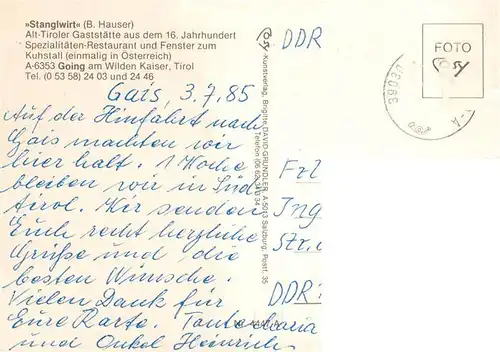 »Stanglwirt« (B. Hauser)
Alt-Tiroler Gaststätte aus dem 16. Jahrhundert
Spezialitäten-Restaurant und Fenster zum
Kuhstall (einmalig in Österreich)
A-6353 Going am Wilden Kaiser, Tirol
Tel. (0 53 58) 24 03 und 24 46
Gais, 3.7.85
Auf der Hinfahrt nach
Gais machten wir
hier halt. 1 Woche
bleiben wir in Süd
tirol. Wir senden
Euch recht herzliche
Grüße und die
besten Wünsche.
Vielen Dank für
Eure Karte. Tante Maria
und Onkel Heinrich
Kunstverlag, Brigitte DAVID-GRÜNDLER, A-5013 Salzburg, Postf. 35
Telefon
DDR
FOTO
Frl
Ing
Str.
DDR